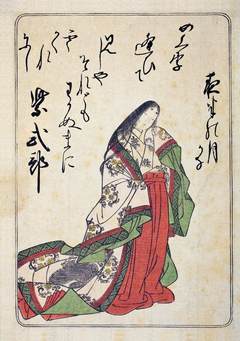 めくり
逢ひて
見しや
それとも
わかぬまに
雲かくれ
にし
夜半乃月
かな
紫式部